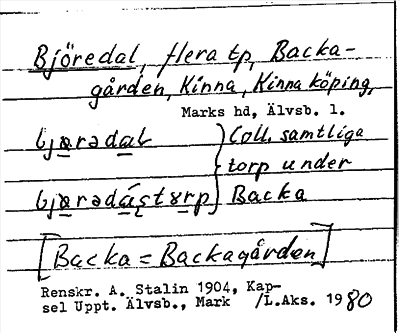 Björedal, flera tp, Backa-
gården, Kinna, Kinna köping,
Marks hd, Älvsb. l.
bjärədal } Coll. samtliga
torp under
bjärədástɤrp } Backa
[Backa = Backagården]
Renskr. A. Stalin 1904, Kap-
sel Uppt. Älvsb., Mark /L.Aks. 1980